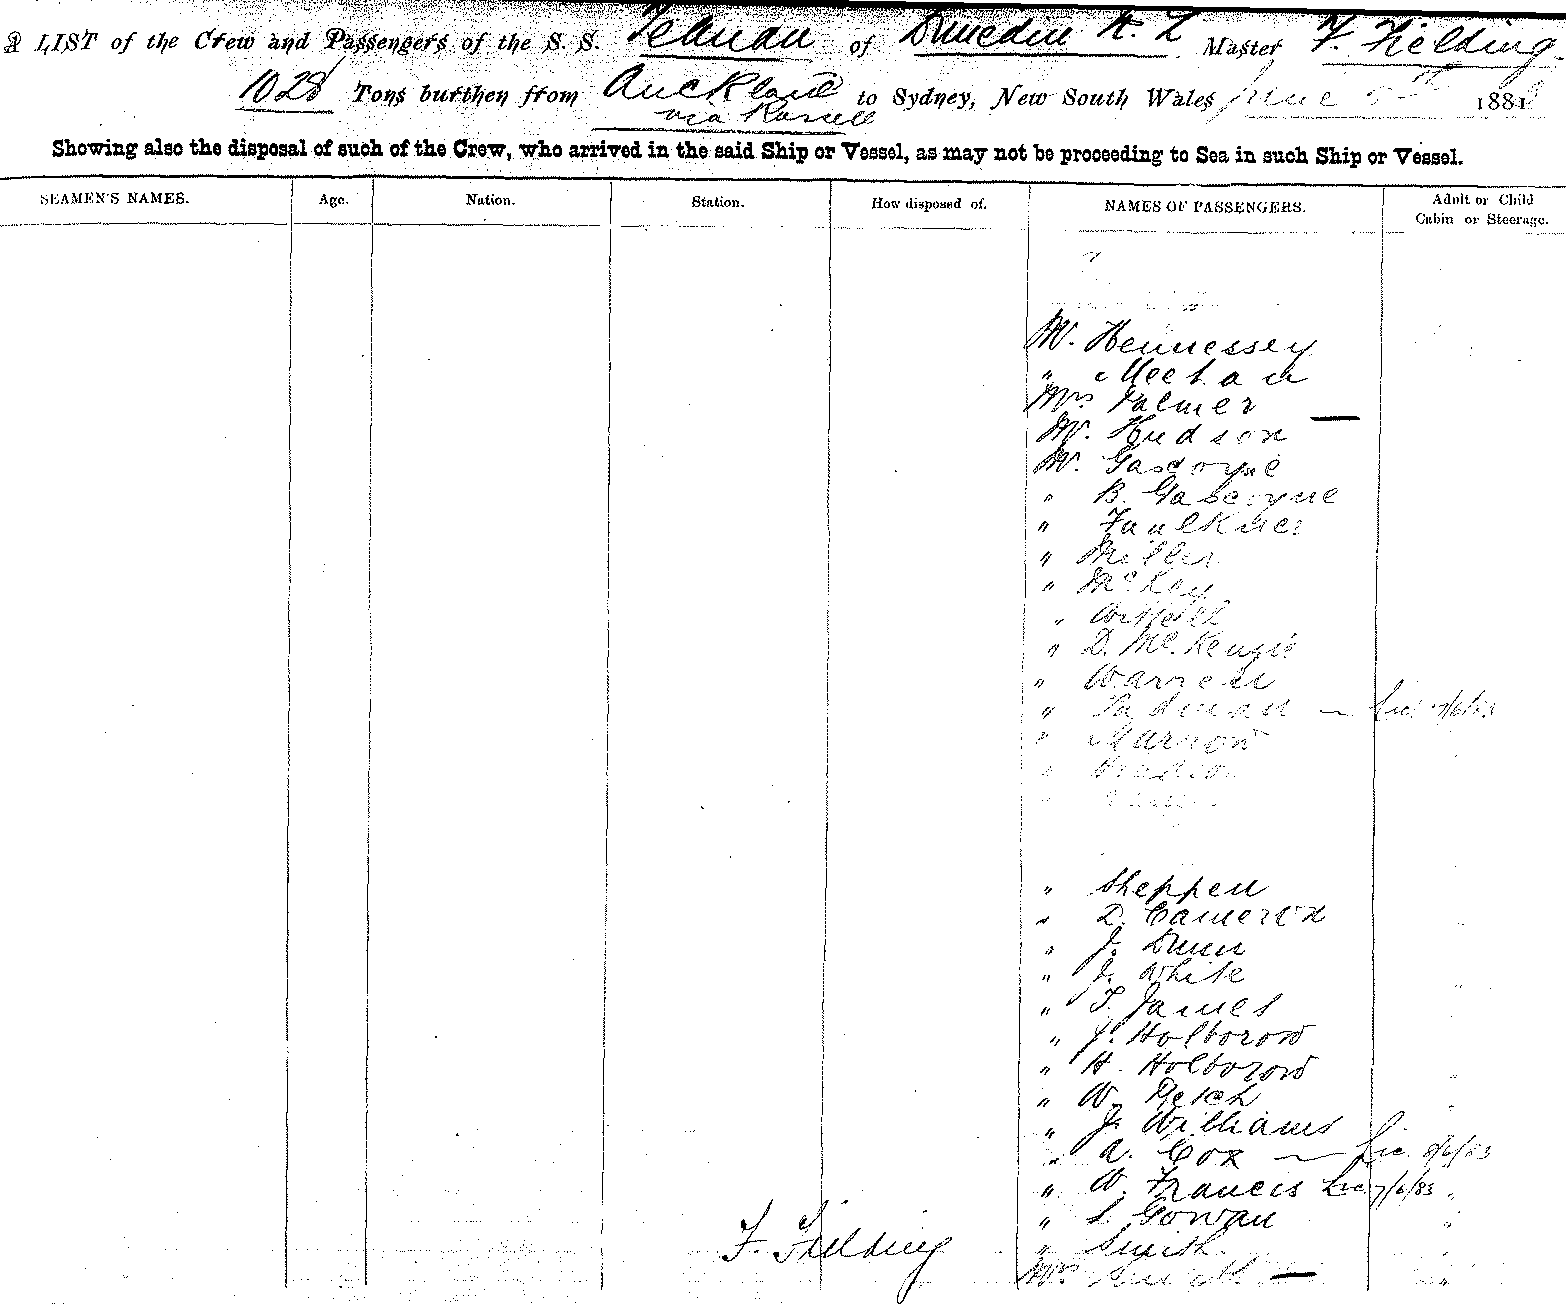 A LIST of the Crew and Passengers of the S. S. Teanau of Dunedin N. Z Master F. Fielding.
1028 Tons burthen from Auckland to Sydney, New South Wales, June 188
via Russell
Showing also the disposal of such of the Crew, who arrived in the said Ship or Vessel, as may not be proceeding to Sea in such Ship or Vessel.
SEAMEN'S NAMES. Age. Nation. Station. How disposed of. NAMES OF PASSENGERS. Adult or Child
Cabin or Steerage.
Mr. Hennessey
" Meehan
Mrs Palmer —
Mr. Hudson
Mr. Gascoyne
" B. Gascoyne
" Faulkner
" Miller
"
"
" D. McKenzie
" Warren
" Tadman — Lic. 7/6/83
" Marrow
"
"
" Sheppen
" D. Cameron
" J. Dunn
" J. White
" T. James
" J. Holborow
" H. Holborow
" W.
" J. Williams
" A. Cox — Lic. 8/6/83
" W. Francis Lic 7/6/83 "
" L. Gowan "
F. Fielding " Smith.
Mrs Smith —